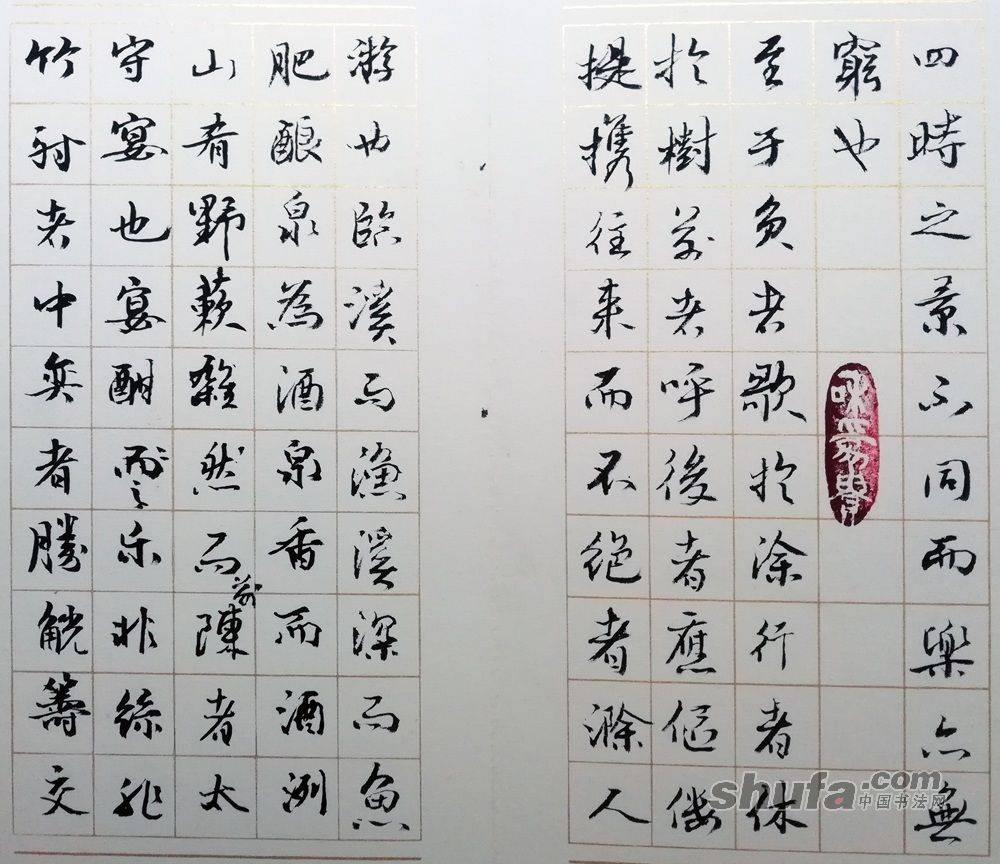 四時之景不同而樂亦無
窮也
至于負者歌於涂行者休
於樹前者呼後者應傴僂
提携往来而不絕者滁人
游也臨溪而漁溪深而魚
肥釀泉為酒泉香而酒洌
山肴野蔌雜然而前陳者太
守宴也宴酣之乐非絲非
竹射者中弈者勝觥籌交
shufa.com
中国书法网